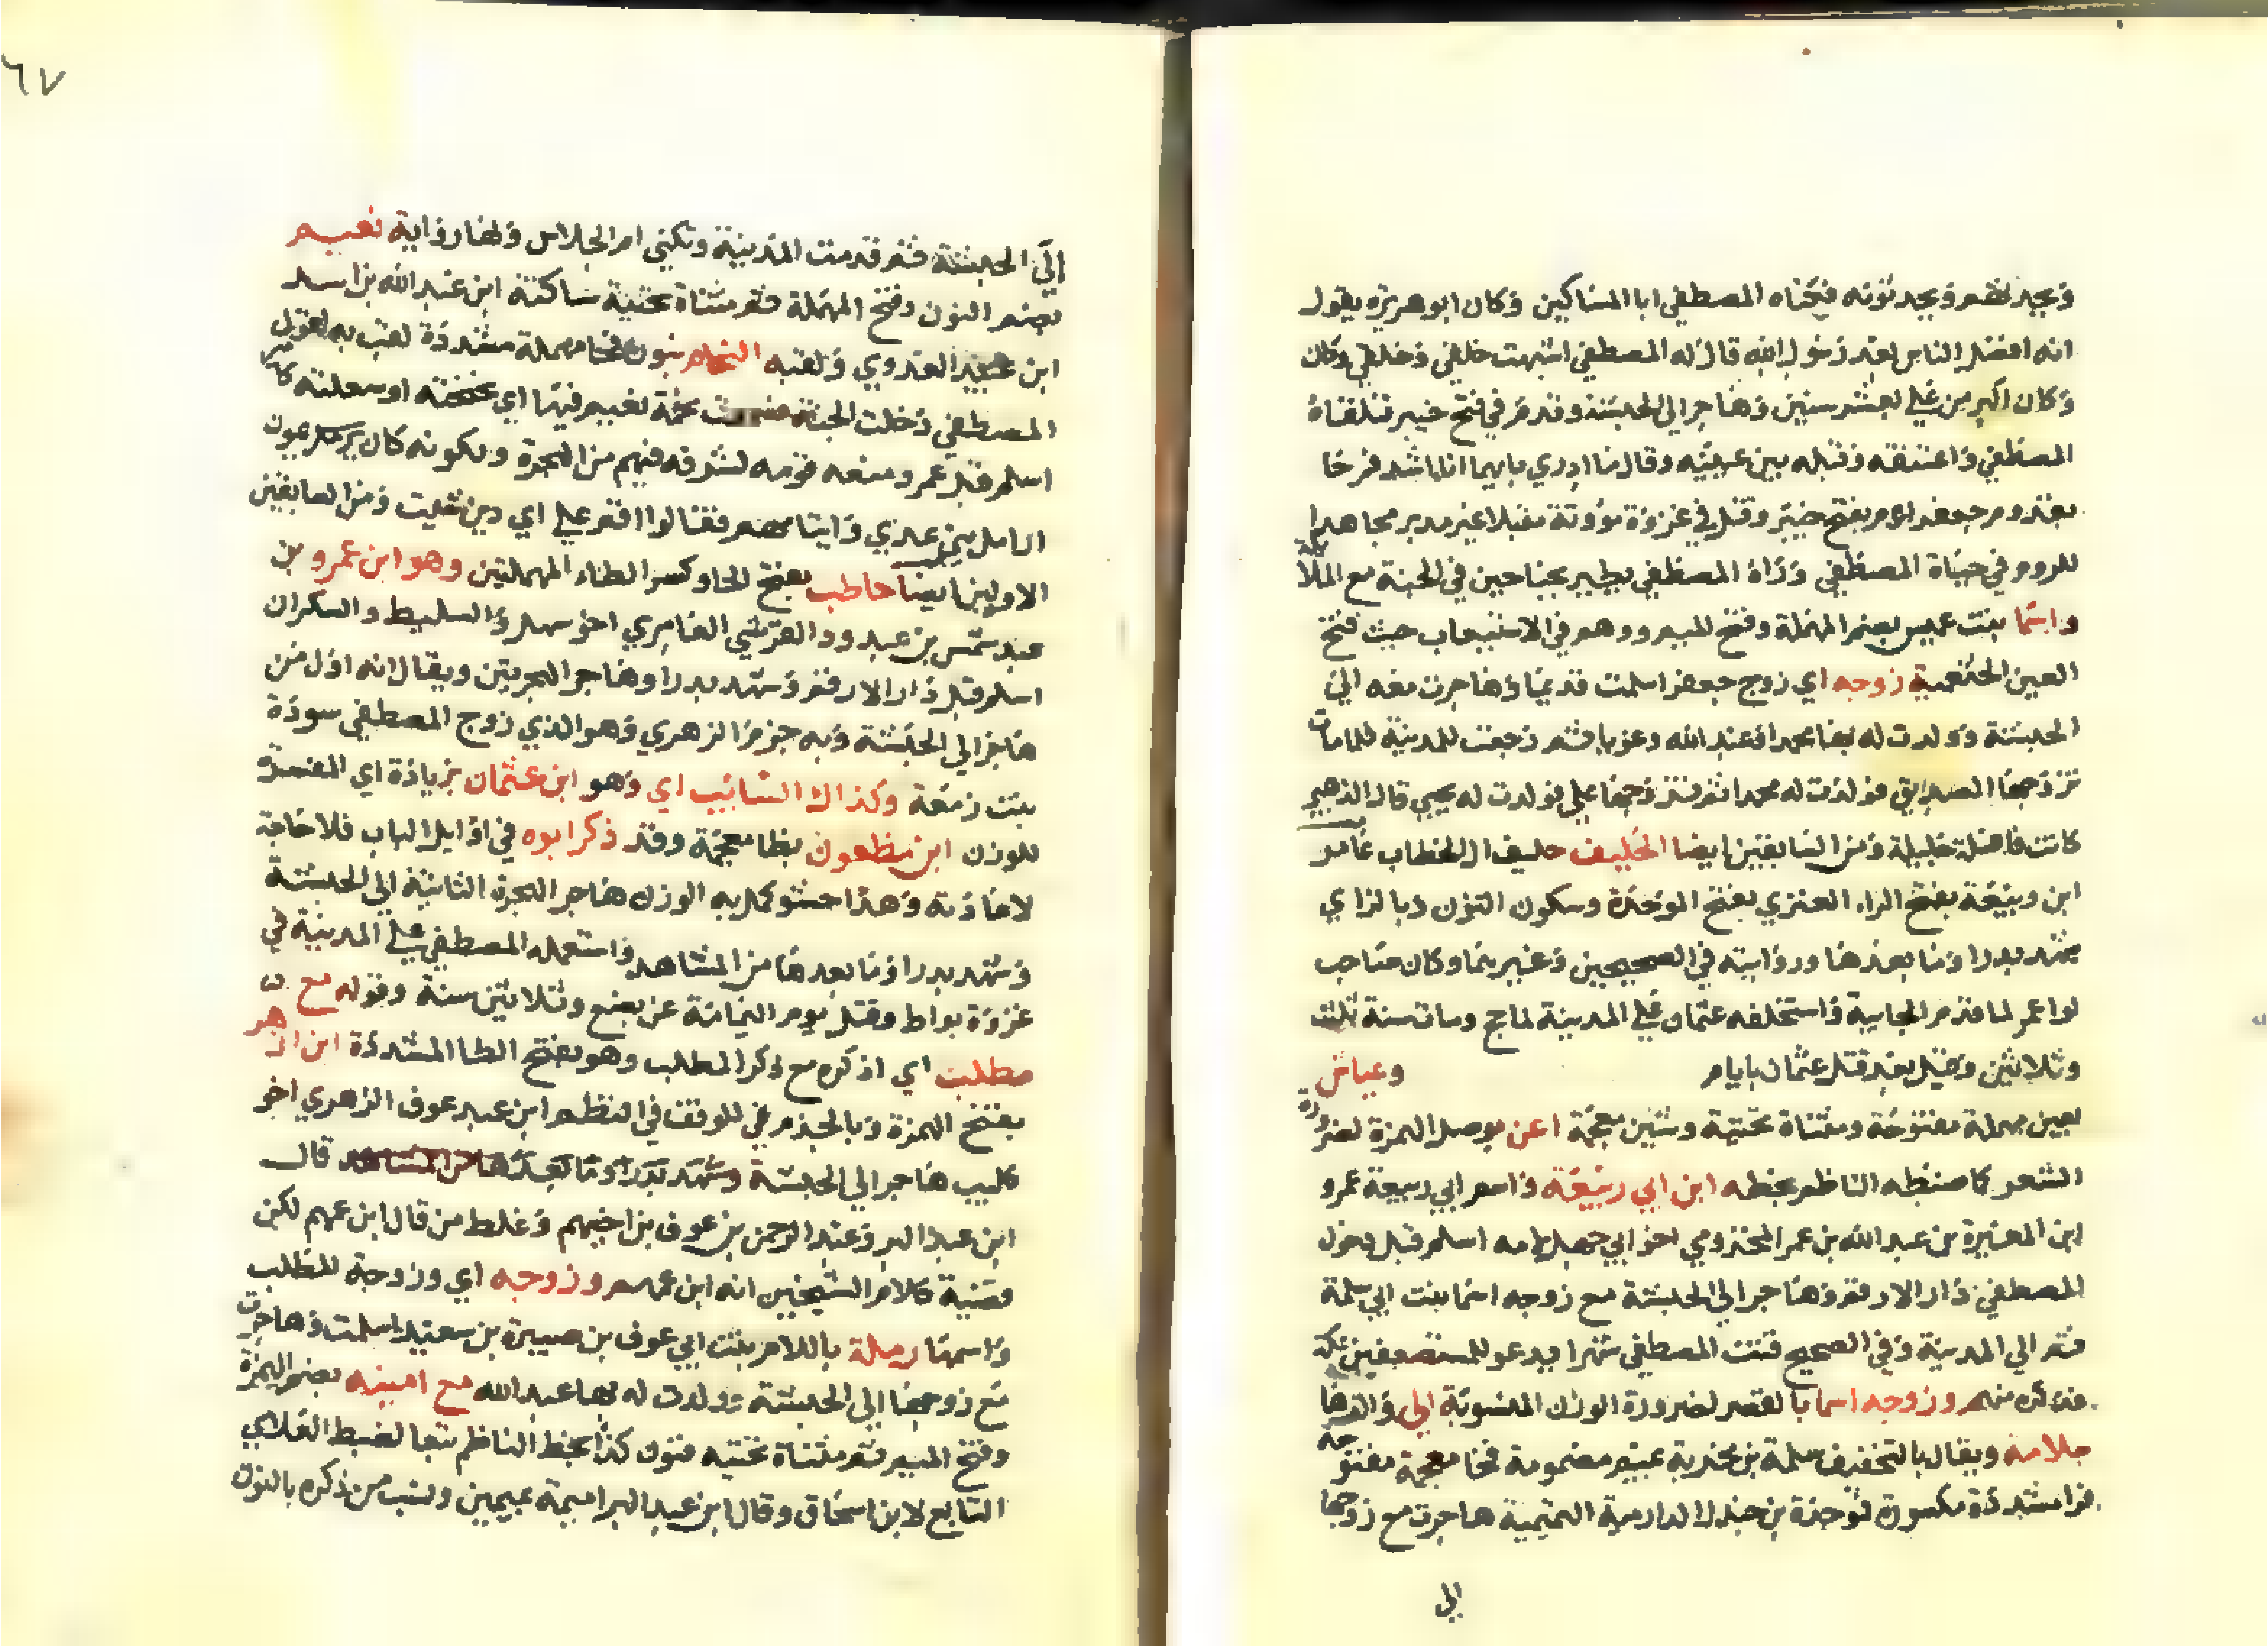 ويجد لهم ويجدثونه فكناه المصطفي ابا المساكين وكان ابو هريرة يقول
انه افضل الناس بعد رسول الله قال له المصطفي اشبهت خلقي وخلقي وكان
وكان اكبر من علي بعشر سنين وهاجر الي الحبشة وقدم في فتح خيبر فتلقاه
المصطفي واعتنقه وقبله بين عينيه وقال ما ادري بايهما انا اشد فرحا
بقدوم جعفر ام بفتح خيبر وقتل في غزوة موءتة مقبلا غير مدبر مجاهدا
للروم في حياة المصطفي وراه المصطفي يطير بجناحين في الجنة مع الملائكة
واسما بنت عميس بضم المهملة وفتح الميم ووهم في الاستيعاب حيث فتح
العين الخثعمية زوجه اي زوج جعفر اسلمت قديما وهاجرت معه الي
الحبشة وولدت له بها محمدا وعبد الله وعونا ثم رجعت للمدينة فلما مات
تزوجها الصديق فولدت له محمدا ثم تزوجها علي فولدت له يحيي قال الذهبي
كانت فاضلة جليلة ومن السابقين ايضا الحليف حليف ال الخطاب عامر
ابن ربيعة بفتح الراء العنزي بفتح الموحدة وسكون النون وبالزاي
شهد بدرا وما بعدها وروايته في الصحيحين وغيرهما وكان صاحب
لوا عمر لما قدم الجابية واستخلفه عثمان علي المدينة لما حج ومات سنة ثلث
وثلاثين وقيل بعد قتل عثمان بايام وعياش
بعين مهملة مفتوحة ومثناة تحتية وشين معجمة اعن بوصل الهمزة لضرورة
الشعر كا ضبطه الناظم بخطه ابن ابي ربيعة واسم ابي ربيعة عمرو
ابن المغيرة بن عبد الله بن عمر المخزومي اخو ابي جهل لامه اسلم قبل دخول
المصطفي دار الارقم وهاجر الي الحبشة مع زوجه اسما بنت ابي سلمة
ثم الي المدينة وفي الصحيح قنت المصطفي شهرا يدعو للمستضعفين بمكة
فذكره منهم وزوجه اسما بالقصر لضرورة الوزن المنسوبة الي والدها
سلامة ويقال بالتخفيف سلمة بن مخربة بميم مضمومة فخا معجمة مفتوحة
فرا مشددة مكسورة فوحدة بن جندل الدارمية التميمية هاجرت مع زوجها
الي
٦٧
الي الحبشة ثم قدمت المدينة وتكني ام الجلاس ولها رواية نعيم
بضم النون وفتح المهملة ثم مثناة تحتية ساكنة ابن عبد الله بن اسد
ابن عبد العدوي ولقبه النحام بنون فحا مهملة مشددة لقب به لقول
المصطفي دخلت الجنة فسمعت نحمة نعيم فيها اي نحنحته او سعلته كا
اسلم قبل عمر ومنعه قومه لشرفه فيهم من الهجرة ولكونه كان يرحم يمون
ارامل بني عدي وايتامهم فقالوا اقم علي اي دين شيت ومن السابقين
الاولين ايضا حاطب بفتح الحا وكسر الطاء المهملتين وهو ابن عمرو بن
عبد شمس بن عبد ود القرشي العامري اخو سهل والسليط والسكران
اسلم قبل دار الارقم وشهد بدرا وهاجر الهجرتين ويقال انه اول من
هاجر الي الحبشة وبه جزم الزهري وهو الذي زوج المصطفي سودة
بنت زمعة وكذاك السائب اي وهو ابن عثمان بزيادة اي المفسرة
للوزن ابن مظعون بظا معجمة وقد ذكر ابوه في اوايل الباب فلا حاجة
لاعادته وهذا حشو كمل به الوزن هاجر الهجرة الثانية الي الحبشة
وشهد بدرا وما بعدها من المشاهد واستعمله المصطفي علي المدينة في
غزوة بواط وقتل يوم اليمامة عن بضع وثلاثين سنة وقوله مع
مطلب اي اذكره مع ذكر المطلب وهو بفتح الطا المشددة ابن ازهر
بفتح الهمزة وبالجزم للوقف في النظم ابن عبد عوف الزهري اخو
كليب هاجر الي الحبشة وشهد بدرا وما بعدها من المشاهد قال
ابن عبد البر وعبد الرحمن بن عوف بن اخيهم وغلط من قال ابن عمهم لكن
قضية كلام الشيخين انه ابن عمهم وزوجه اي وزوجة المطلب
واسمها رملة باللام بنت ابي عوف بن صبيرة بن سعيد اسلمت وهاجرت
مع زوجها الي الحبشة وولدت له بها عبد الله مع امينه بضم الهمزة
وفتح الميم ثم مثناة تحتيه فنون كذا بخط الناظم تبعا لضبط العلائي
التابع لابن اسحاق وقال ابن عبد البر اميمة بميمين ونسب من ذكره بالنون